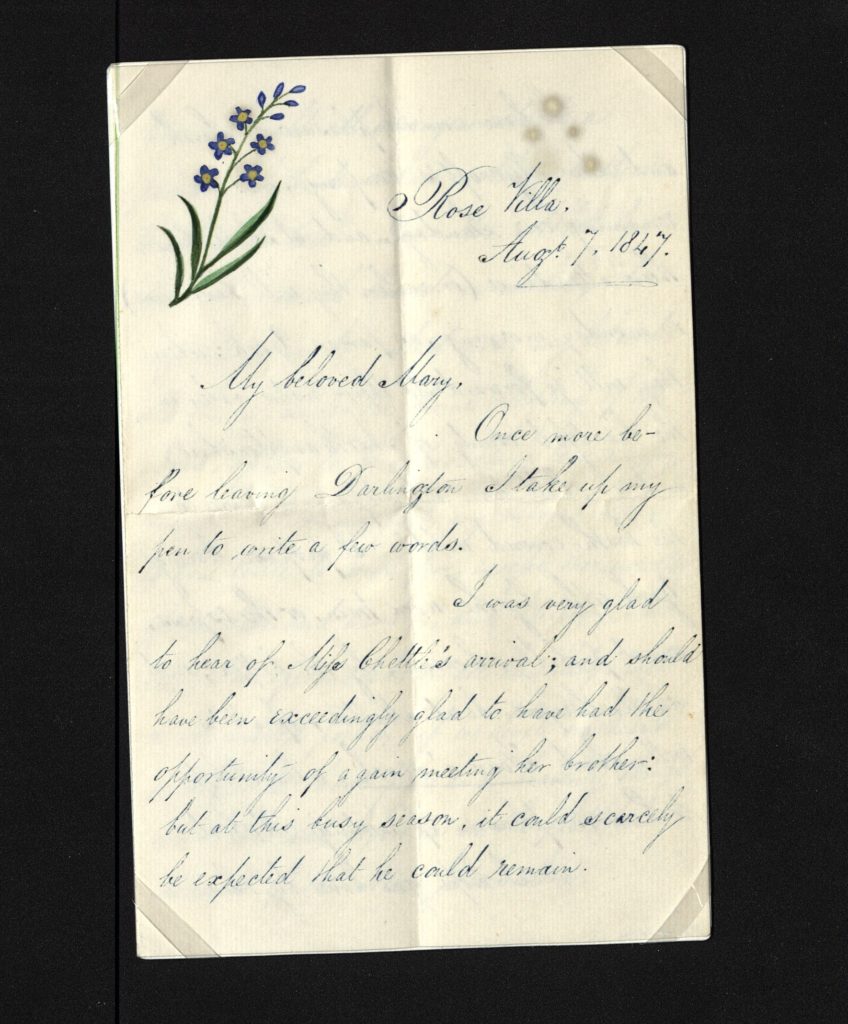 Rose Villa.
Augt. 7. 1847.
My beloved Mary,
Once more be-
fore leaving Darlington I take up my
pen to write a few words.
I was very glad
to hear of Miss Chettle's arrival; and should
have been exceedingly glad to have had the
opportunity of again meeting her brother:
but at this busy season, it could scarcely
be expected that he could remain.